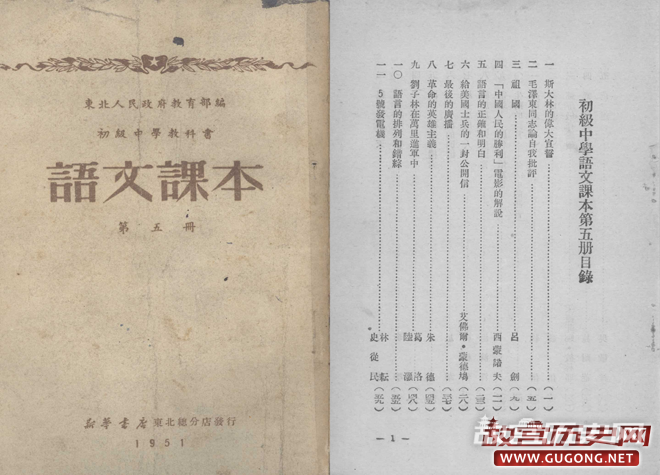 東北人民政府教育部編
初級中學教科書
語文課本
第五冊
新華書店東北總分店發行
1951
初級中學語文課本第五册目錄
一 斯大林的偉大宣誓……(一)
二 毛澤東同志論自我批評……(五)
三 祖國……呂劍(九)
四 「中國人民的勝利」電影的解說……西蒙諾夫(一一)
五 語言的正確和明白……
六 給美國士兵的一封公開信……艾佛爾•蒙德塢
七 最後的廣播……
八 革命的英雄主義……朱德
九 劉子林在萬里進軍中……葛洛
一〇 語言的排列和錯綜……
一一 5號發電機……林耘 史從民
— 1 —
故宫历史网
WWW.GUGONG.NET